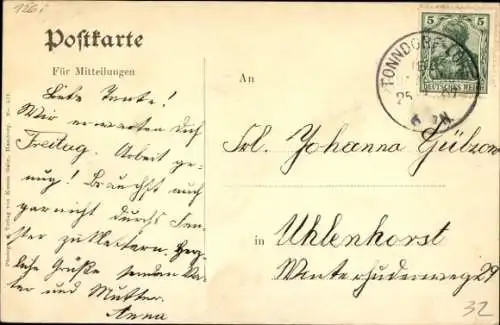 1261
Postkarte
Für Mitteilungen
An
in
5
DEUTSCHES REICH
TONNDORF-LOHE
25
N.
Liebe Tante!
Wir erwarten dich
Freitag. Arbeit ge-
nug! Brauchst auch
gar nicht durchs Fen-
ster zu klettern. Herz-
liche Grüße senden Va-
ter und Mutter.
Anna
Frl. Johanna Gülzow
Uhlenhorst
Winterhuderweg 29
32